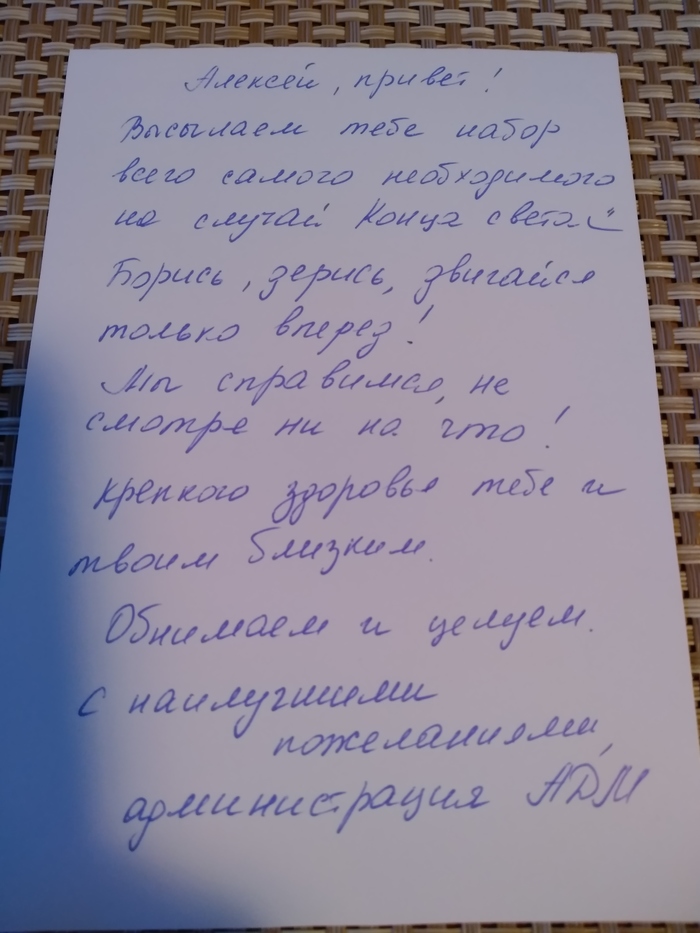 Алексей, привет!
Высылаем тебе набор
всего самого необходимого
на случай Конца света
Борись, держись, двигайся
только вперед!
Мы справимся, не
смотря ни на что!
Крепкого здоровья тебе и
твоим близким.
Обнимаем и целуем.
С наилучшими
пожеланиями,
администрация АДМ